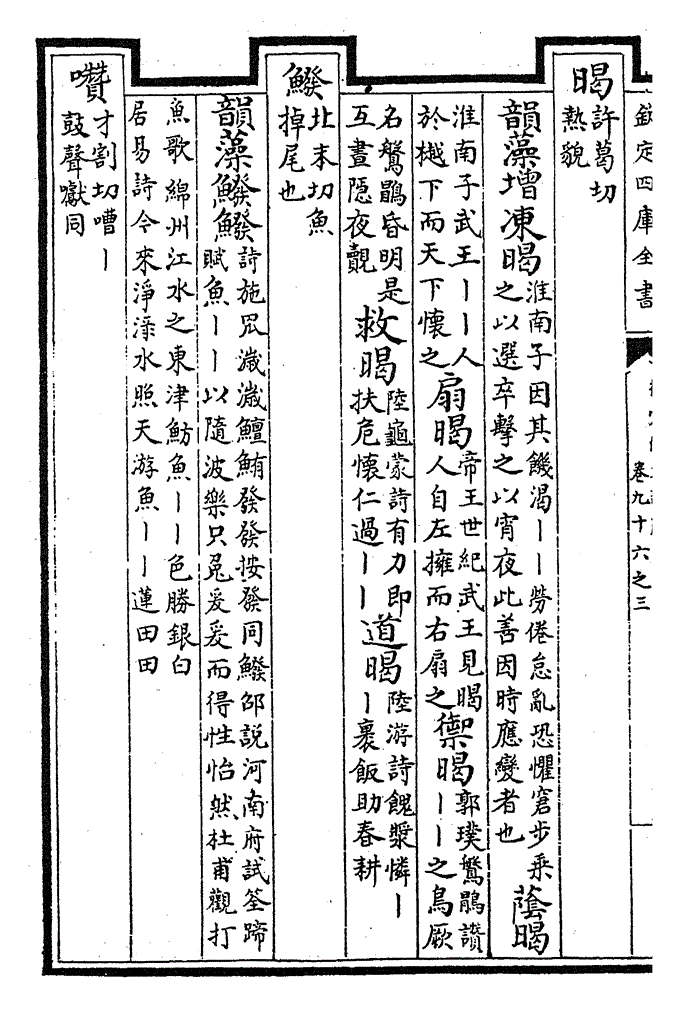 欽定四庫全書
卷九十六之三
暍
許葛切
熱貌
韻藻增凍暍
淮南子因其饑渴丨丨勞倦怠亂恐懼窘步乘
之以選卒擊之以宵夜此善因時應變者也
蔭暍
淮南子武王丨丨人
於樾下而天下懷之
扇暍
帝王世紀武王見暍
人自左擁而右扇之
禦暍
郭璞鷩鶥讃
丨丨之鳥厥
名鷩鶥昏明是
互晝隱夜覿
救暍
陸龜蒙詩有刀即
扶危懷仁過丨丨
道暍
陸游詩餽漿憐丨
丨裹飯助春耕
鱍
北末切魚
掉尾也
韻藻鱍鱍
詩施罛濊濊鱣鮪發發按發同鱍邵說河南府試筌蹄
賦魚丨丨以隨波樂只兔爰爰而得性怡然杜甫觀打
魚歌綿州江水之東津魴魚丨丨色勝銀白
居易詩今來淨淥水照天游魚丨丨蓮田田
囋
才割切嘈丨
鼓聲囐同